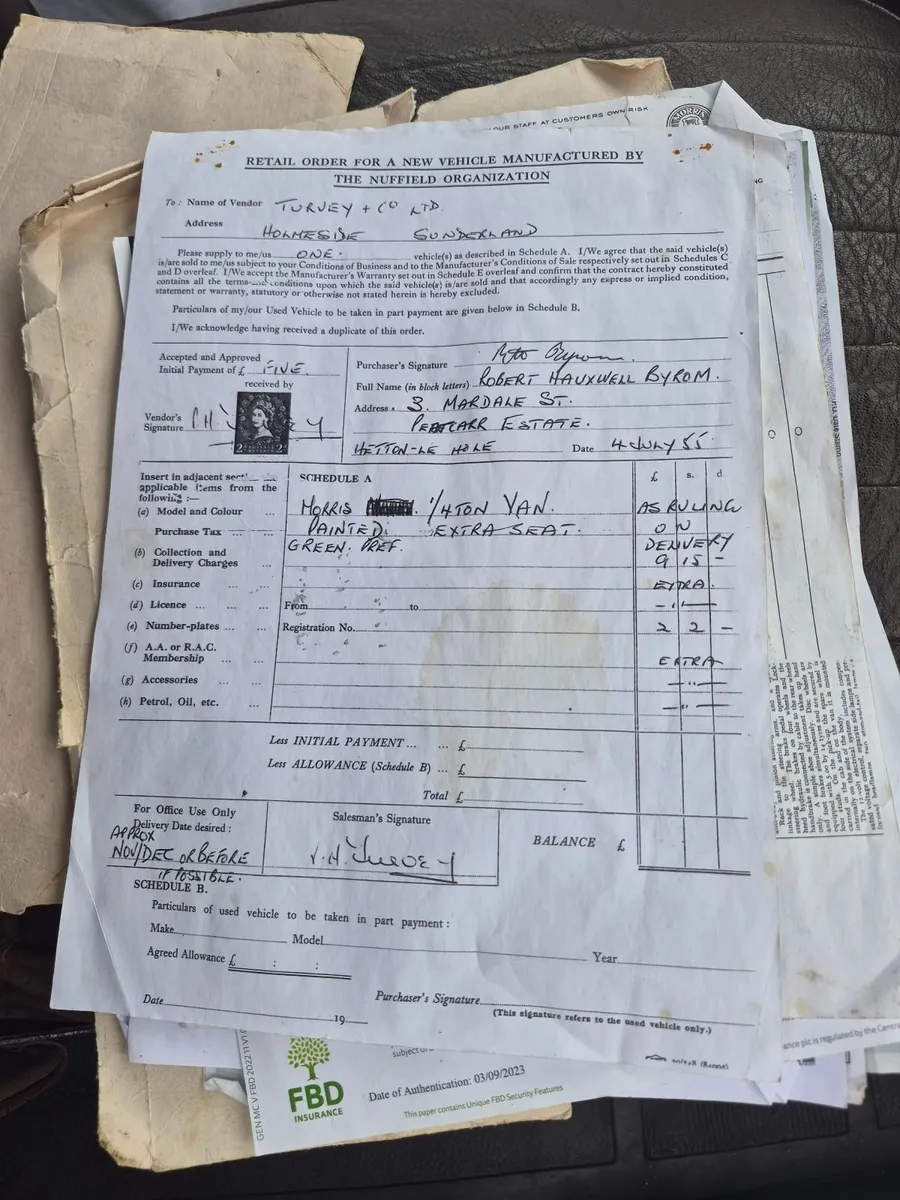 OUR STAFF AT CUSTOMERS OWN RISK
MORRIS
RETAIL ORDER FOR A NEW VEHICLE MANUFACTURED BY
THE NUFFIELD ORGANIZATION
To: Name of Vendor TURVEY + CO LTD.
Address HOLMESIDE SUNDERLAND
Please supply to me/us ONE. vehicle(s) as described in Schedule A. I/We agree that the said vehicle(s)
is/are sold to me/us subject to your Conditions of Business and to the Manufacturer's Conditions of Sale respectively set out in Schedules C
and D overleaf. I/We accept the Manufacturer's Warranty set out in Schedule E overleaf and confirm that the contract hereby constituted
contains all the terms and conditions upon which the said vehicle(s) is/are sold and that accordingly any express or implied condition,
statement or warranty, statutory or otherwise not stated herein is hereby excluded.
Particulars of my/our Used Vehicle to be taken in part payment are given below in Schedule B.
I/We acknowledge having received a duplicate of this order.
Accepted and Approved
Initial Payment of £ FIVE.
received by
Vendor's
Signature
2D 2D
Purchaser's Signature
Full Name (in block letters) ROBERT HAUXWELL BYROM.
Address 3. MARDALE ST.
ESTATE.
HETTON-LE HOLE Date 4 JULY 55
Insert in adjacent
applicable items from the
following :—
SCHEDULE A
£ s. d
(a) Model and Colour ... MORRIS 1/4 TON VAN. AS RULING
Purchase Tax ... ... PAINTED. EXTRA SEAT. ON
GREEN. PREF. DELIVERY
(b) Collection and
Delivery Charges ... 9 15 -
(c) Insurance ... EXTRA.
(d) Licence ... ... ... From to - " -
(e) Number-plates ... ... Registration No. 2 2 -
(f) A.A. or R.A.C.
Membership ... ... EXTRA
(g) Accessories ... ... - " -
(h) Petrol, Oil, etc. ... - " -
Less INITIAL PAYMENT ... ... £
Less ALLOWANCE (Schedule B) ... £
Total £
For Office Use Only
Delivery Date desired :
APPROX
NOV/DEC OR BEFORE
IF POSSIBLE.
Salesman's Signature
J.H. Turvey
BALANCE £
SCHEDULE B.
Particulars of used vehicle to be taken in part payment :
Make Model Year
Agreed Allowance £ : :
Date 19 Purchaser's Signature
(This signature refers to the used vehicle only.)
FBD
INSURANCE
subject
Date of Authentication: 03/09/2023
This paper contains Unique FBD Security Features
GEN MC V FBD 2022 11 V1
plc is regulated by the Centra